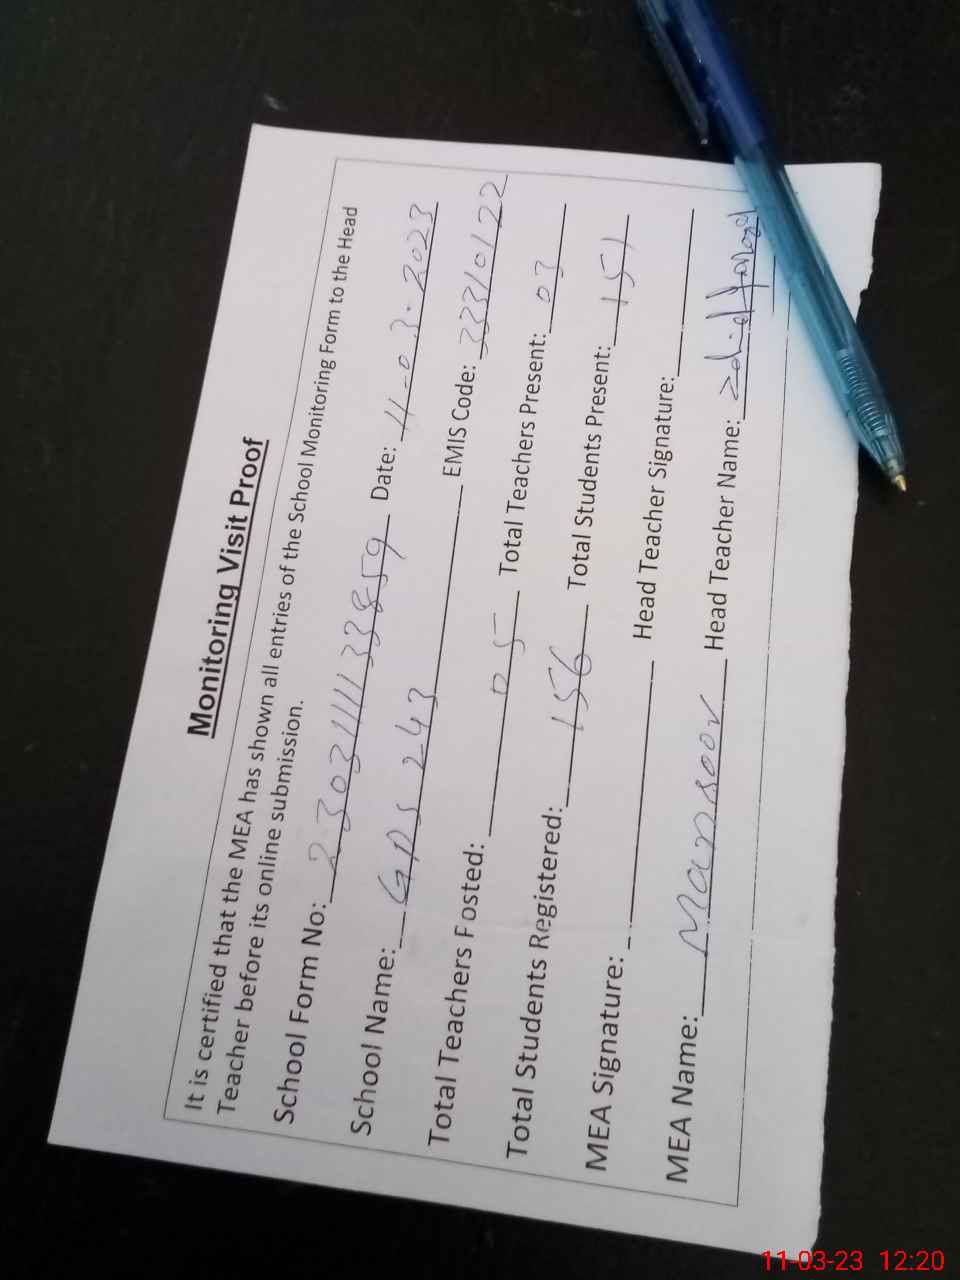 Monitoring Visit Proof
It is certified that the MEA has shown all entries of the School Monitoring Form to the Head
Teacher before its online submission.
School Form No: 230311133859 Date: 11-03-2023
School Name: GPS 243 EMIS Code: 33310122
Total Teachers Fosted: 05 Total Teachers Present: 03
Total Students Registered: 156 Total Students Present: 151
MEA Signature: Head Teacher Signature:
MEA Name: Mansoor Head Teacher Name:
11-03-23 12:20